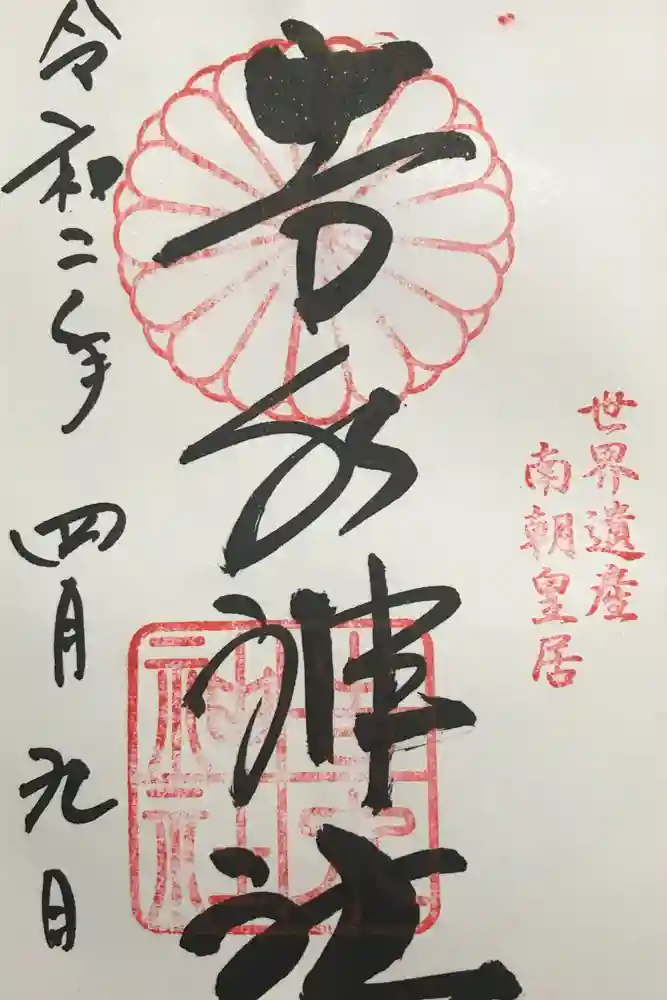 世界遺産
南朝皇居
吉水神社
令和二年 四月九日